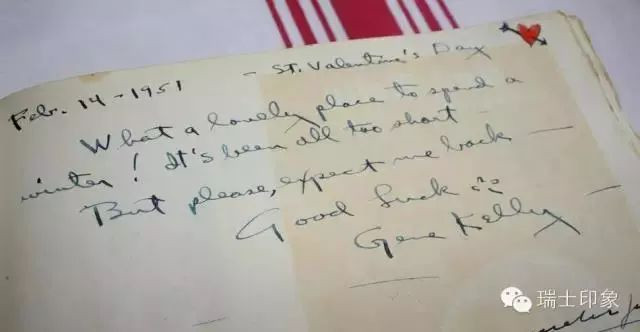 Feb. 14 - 1951 - St. Valentine's Day
What a lovely place to spend a
winter! It's been all too short —
But please, expect me back —
Good luck
Gene Kelly
瑞士印象